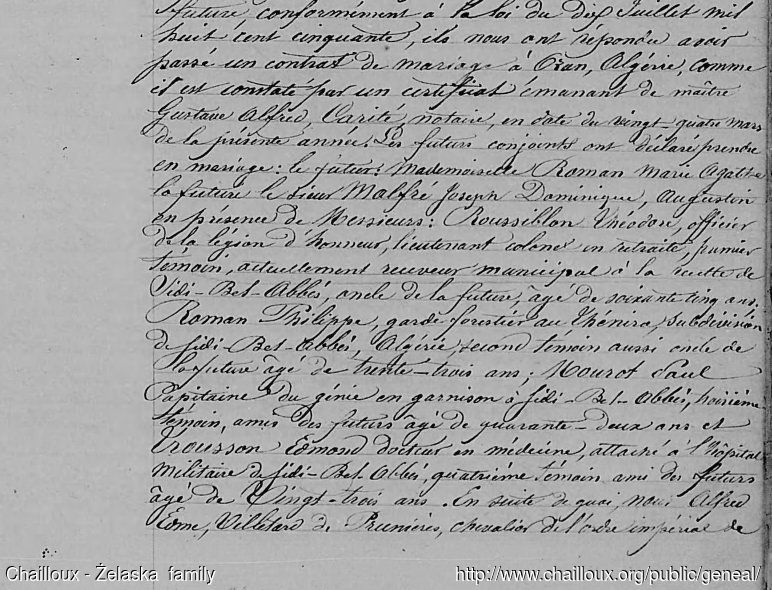 future conformément à la loi du dix Juillet mil
huit cent cinquante, ils nous ont répondu avoir
passé un contrat de mariage à Oran, Algérie, comme
il est constaté par un certificat émanant de maître
Gustave Alfred, Carité, notaire, en date du vingt-quatre mars
de la présente année. Les futurs conjoints ont déclaré prendre
en mariage: le futur: Mademoiselle Roman Marie Agathe
la future le sieur Malfré Joseph Dominique, Augustin
en présence de Messieurs: Roussiblon Théodore, officier
de la légion d'honneur, lieutenant colonel en retraite, premier
témoin, actuellement receveur municipal à la recette de
Sidi-Bel-Abbès, oncle de la future, âgé de soixante cinq ans,
Roman Philippe, garde forestier au Khémira, subdivision
de Sidi-Bel-Abbès, Algérie, second témoin aussi oncle de
la future âgé de trente-trois ans; Mourot Paul
Capitaine du génie en garnison à Sidi-Bel-Abbès, troisième
témoin, amis des futurs âgé de quarante-deux ans et
Trousson Edmond docteur en médecine, attaché à l'hôpital
militaire de Sidi-Bel-Abbès, quatrième témoin ami des futurs
âgé de Vingt-trois ans. En suite de quoi, nous Alfred
Edme, Villetard de Prunières, chevalier de l'ordre impérial de
Chailloux - Żelaska family
http://www.chailloux.org/public/geneal/